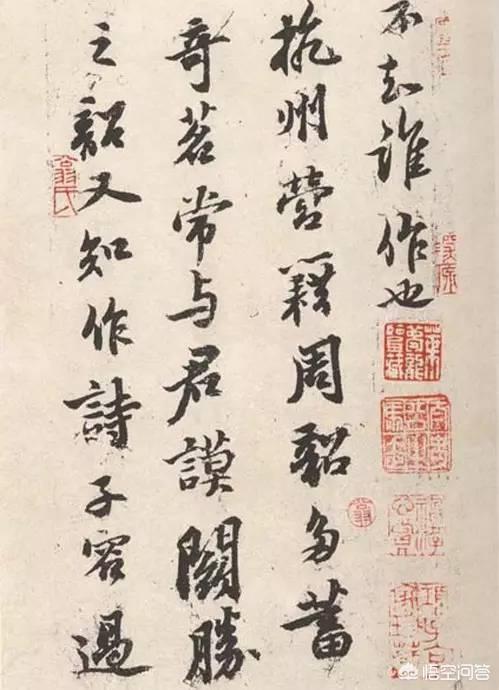 不知誰作也
杭州營籍周韶多蓄
奇茗常与君謨鬬勝
之韶又知作詩子容過
翁氏
悟空问答